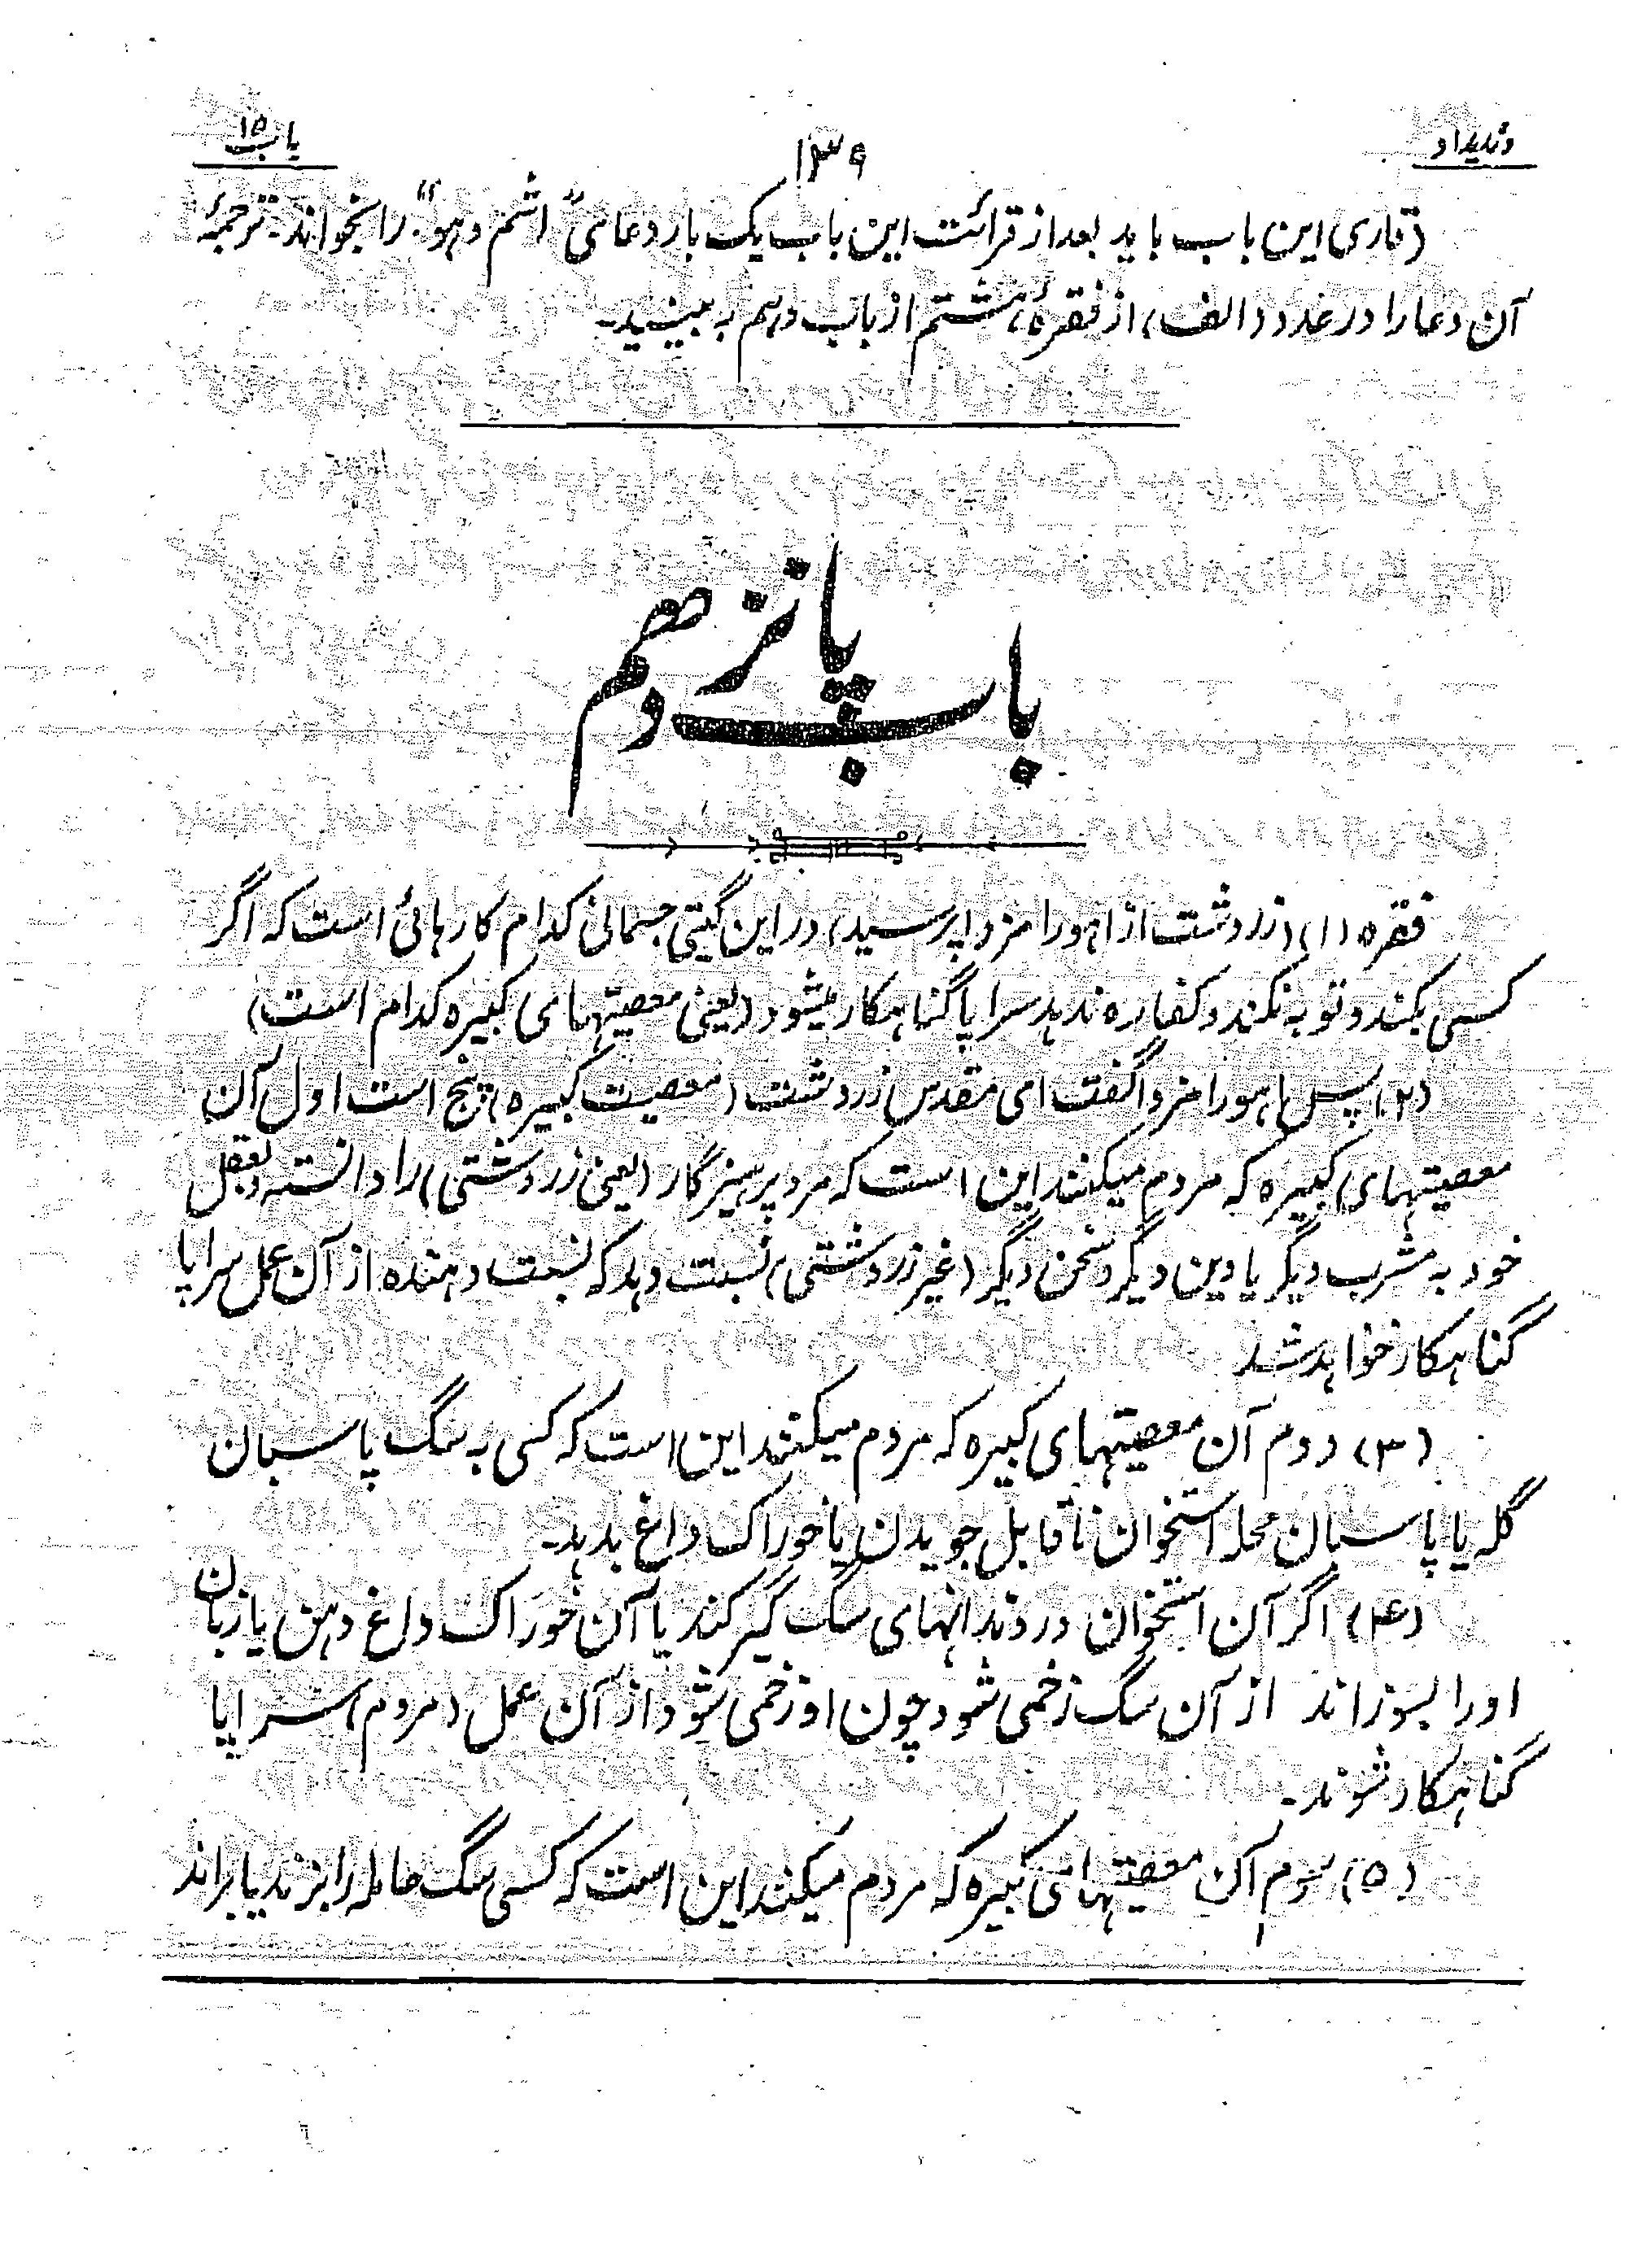 وندیداد
۱۳۶
باب ۱۵
(قاری این باب باید بعد از قرائت این باب یک بار دعای "اشم وهو" را بخواند. ترجمهٔ
آن دعا را در عدد (الف) از فقرهٔ هشتم از باب دهم به بینید.
باب پانزدهم
فقره (۱) (زردشت از اهورا مزدا پرسید) در این گیتی جسمانی کدام کارهائی است که اگر
کسی بکند و توبه نکند و کفاره ندهد سراپا گناهکار میشود (یعنی معصیتهای کبیره کدام است)
(۲) پس اهورا مزدا گفت ای مقدس زردشت (معصیت کبیره) پنج است اول آن
معصیتهای کبیره که مردم میکنند این است که مرد پرهیزگار (یعنی زردشتی) را دانسته و بعقل
خود به مشرب دیگر یا دین دیگر و سخن دیگر (غیر زردشتی) نسبت دهد که نسبت دهنده از آن عمل سراپا
گناهکار خواهد شد
(۳) دوم آن معصیتهای کبیره که مردم میکنند این است که کسی به سگ پاسبان
گله یا پاسبان محله استخوان ناقابل جویدن یا خوراک داغ بدهد.
(۴) اگر آن استخوان در دندانهای سگ گیر کند یا آن خوراک داغ دهن یا زبان
او را بسوزاند از آن سگ زخمی شود چون او زخمی شود از آن عمل (مردم) سراپا
گناهکار شوند.
(۵) سوم آن معصیتهای کبیره که مردم میکنند این است که کسی سگ حامله را بزند یا براند